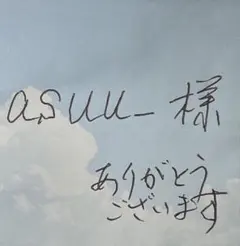 asuu_ 様
ありがとう
ございます